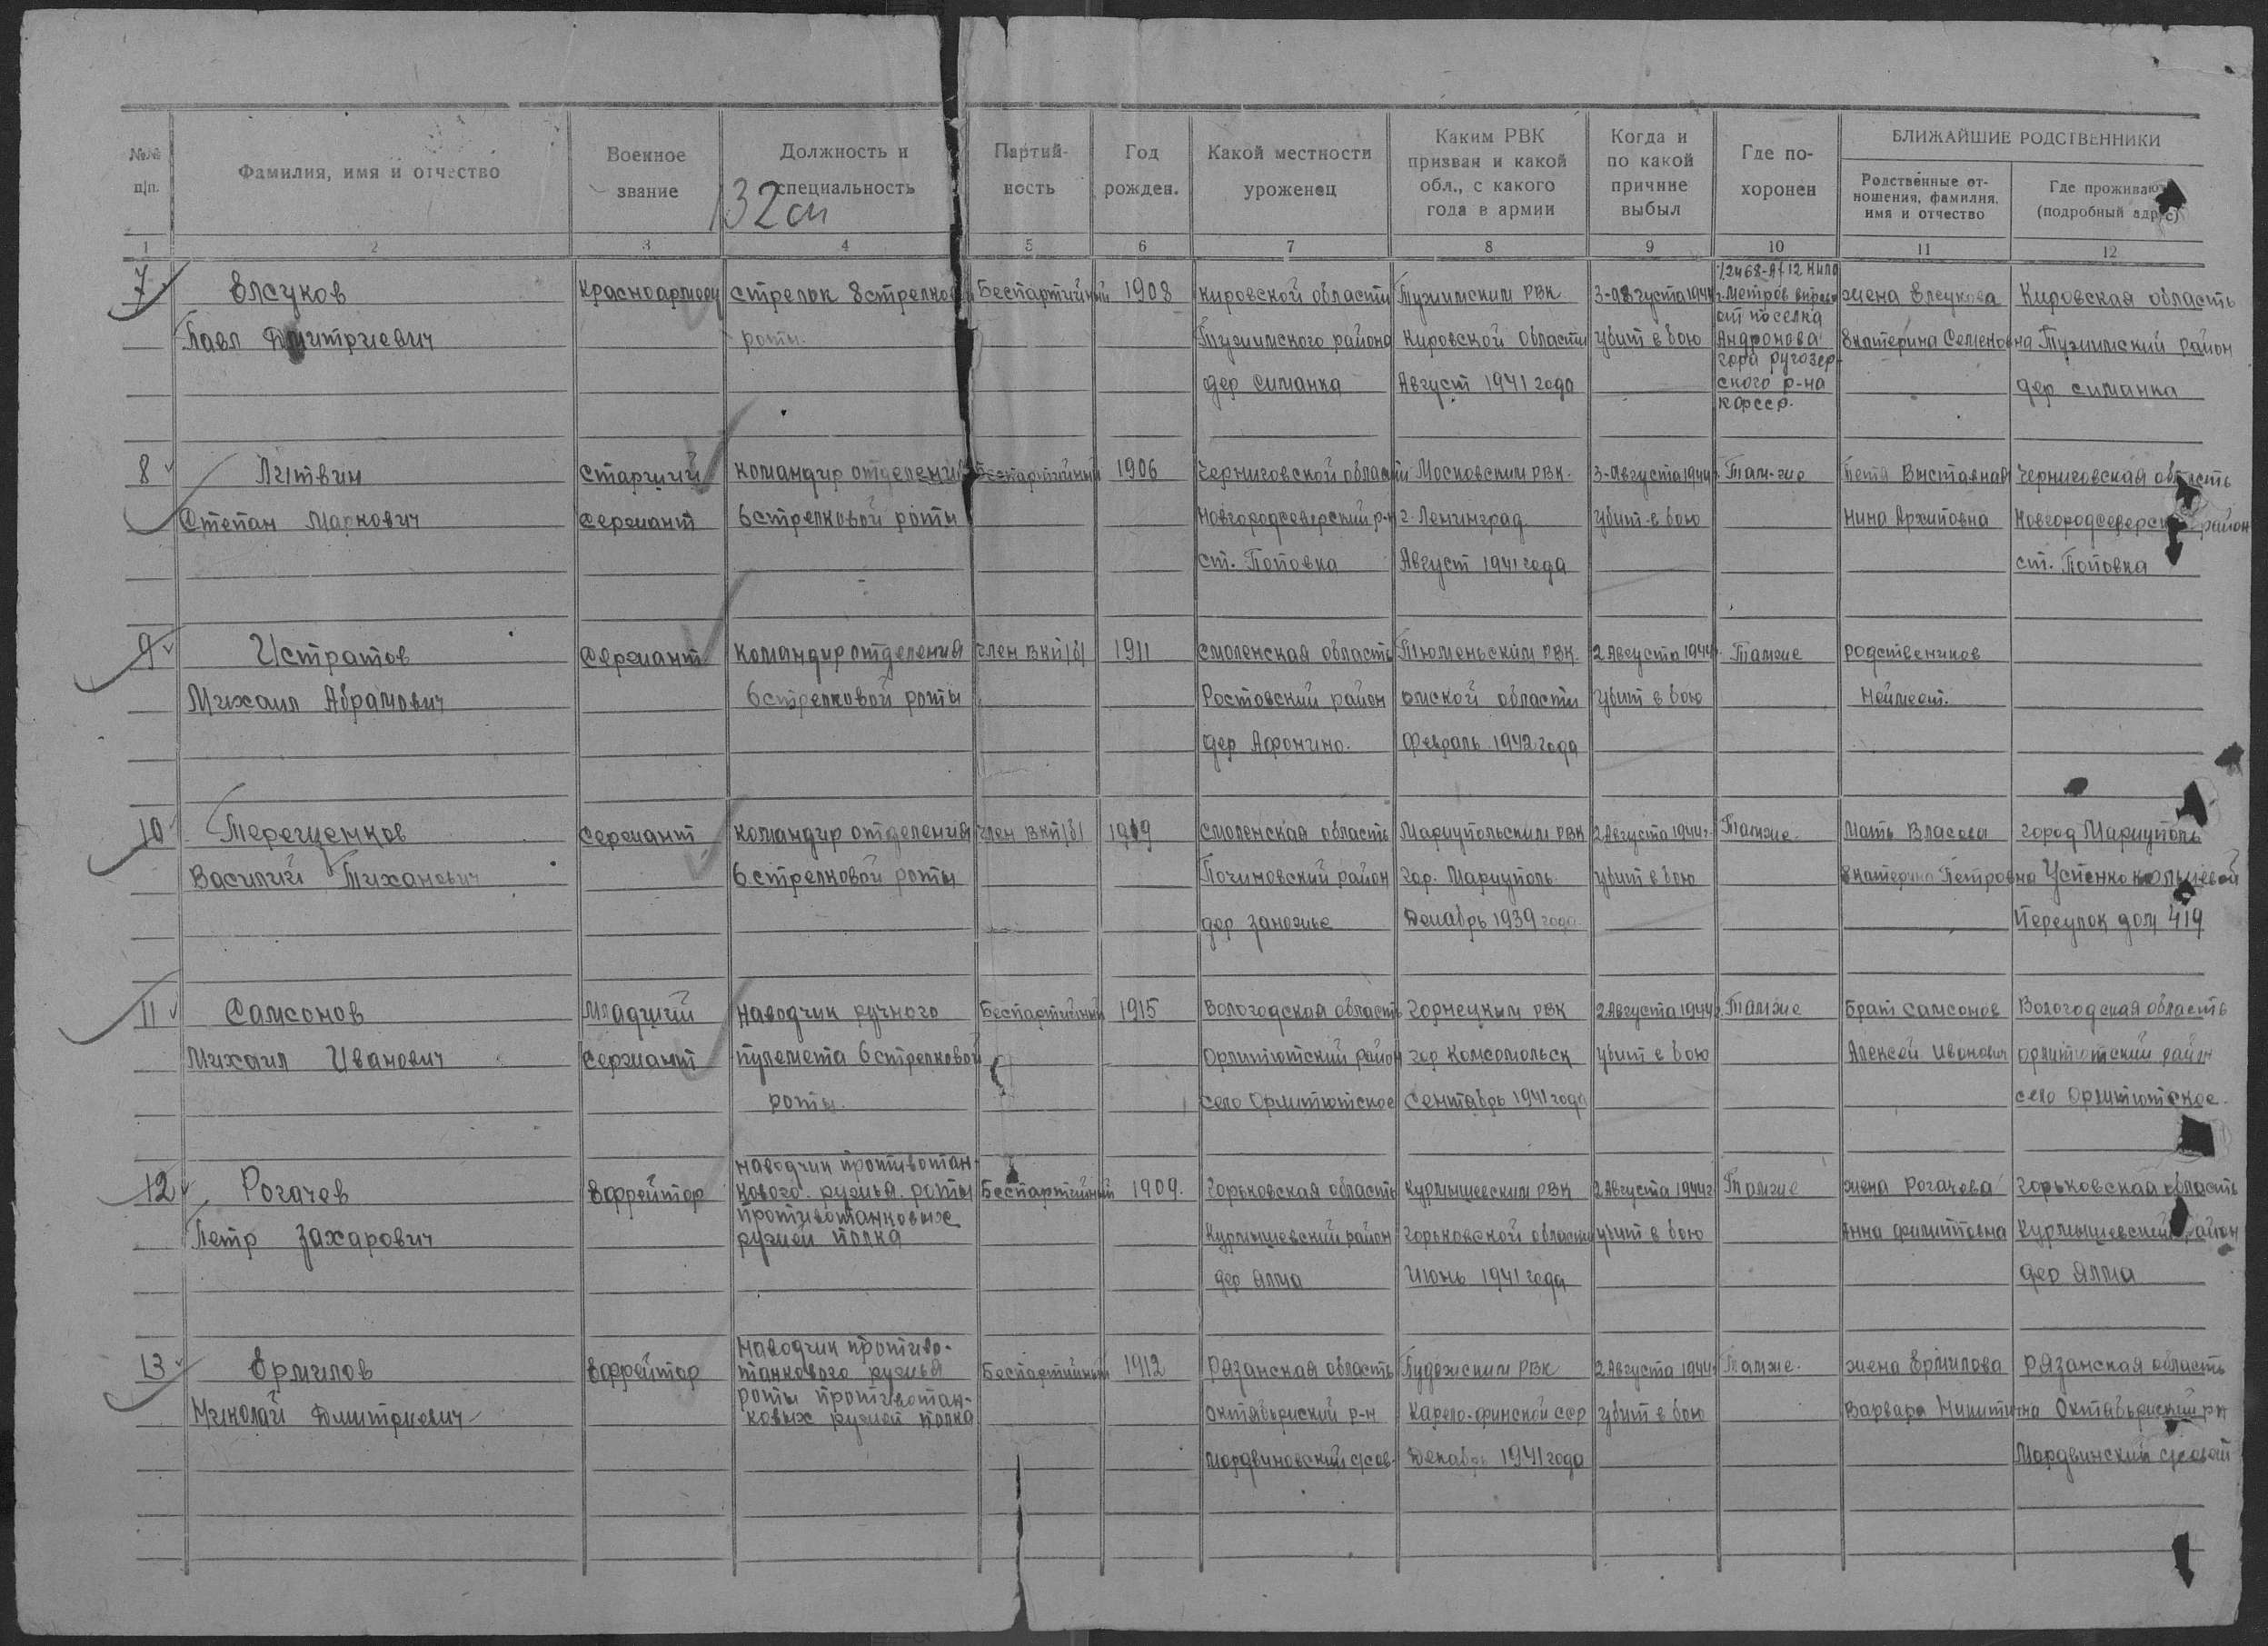 №№ п/п.
Фамилия, имя и отчество
Военное звание
Должность и специальность
132 сп
Партий-ность
Год рожден.
Какой местности уроженец
Каким РВК призван и какой обл., с какого года в армии
Когда и по какой причине выбыл
Где по-хоронен
БЛИЖАЙШИЕ РОДСТВЕННИКИ
Родственные от-ношения, фамилия, имя и отчество
Где проживают (подробный адрес)
1 2 3 4 5 6 7 8 9 10 11 12
7 Елсуков Красноармеец стрелок 8 стрелковой Беспартийный 1908 Кировской области Тужимским РВК 3-августа 1944 метров вправо жена Елсукова Кировская область
Павл Дмитриевич роты. Тужимского района Кировской области убит в бою от поселка Андронова Екатерина Семеновна Тужимский район
дер Симанка Август 1941 года гора ругозер-ского р-на кфсср. дер симанка
8 Литвин Старший командир отделения Беспартийный 1906 Черниговской области Московским РВК. 3-Августа 1944 г. Там-же Выставная Черниговская область
Степан Маркович Сержант 6 стрелковой роты Новгородсеверский р-н г. Ленинград убит в бою Нина Архиповна Новгородсеверск район
ст. Поповка Август 1941 года ст. Поповка
9 Истратов Сержант Командир отделения член ВКП/б/ 1911 Смоленская область Тюменьским РВК. 2 Августа 1944 г. Тамже родствеников
Михаил Абрамович 6 стрелковой роты Ростовский район омской области убит в бою Неимеет.
дер Афонино. Февраль 1942 года
10 Терещенков Сержант командир отделения член ВКП/б/ 1919 Смоленская область Мариупольским РВК 2 Августа 1944 г. Тамже. Мать Власова город Мариуполь
Василий Тиханович 6 стрелковой роты Починовский район гор. Мариуполь убит в бою Екатерина Петровна
дер заножье Декабрь 1939 года Переулок дом 419
11 Самсонов Младший Наводчик ручного Беспартийный 1915 Вологодская область Горнецким РВК 2 Августа 1944 г. Тамже Брат Самсонов Вологодская область
Михаил Иванович Сержант пулемета 6 стрелковой Орлитютский район гор Комсомольск убит в бою Алексей Иванович орлитютский район
роты. село Орлитютское Сентябрь 1941 года село орлитютское.
12 Рогачев Ефрейтор наводчик противотан-кового ружья роты Беспартийный 1909. Горьковская область Курмышевским РВК 2 Августа 1944 г Тамже жена Рогачева Горьковская область
Петр Захарович противотанковых ружей полка Курмышевский район Горьковской области убит в бою Анна Филипповна Курмышевский район
дер Ялма Июнь 1941 года дер Ялма
13 Ермилов Ефрейтор Наводчик противо-танкового ружья Беспартийный 1912 Рязанская область Пудожским РВК 2 Августа 1944 г. Тамже. жена Ермилова Рязанская область
Николай Дмитриевич роты противотан-ковых ружей полка Октябьриский р-н Карело-финской сср убит в бою Варвара Никитична Октябьриский рн
Мордвиновский с/сов. Декабрь 1941 года Мордвинский с/совет